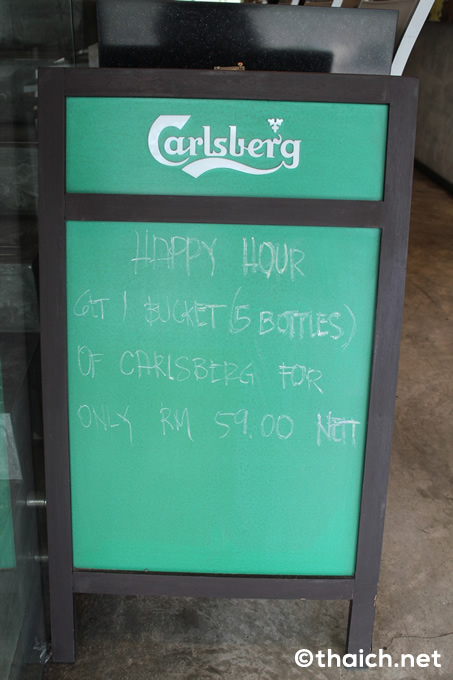 Carlsberg
HAPPY HOUR
GET 1 BUCKET (5 BOTTLES)
OF CARLSBERG FOR
ONLY RM 59.00 NETT
©thaich.net